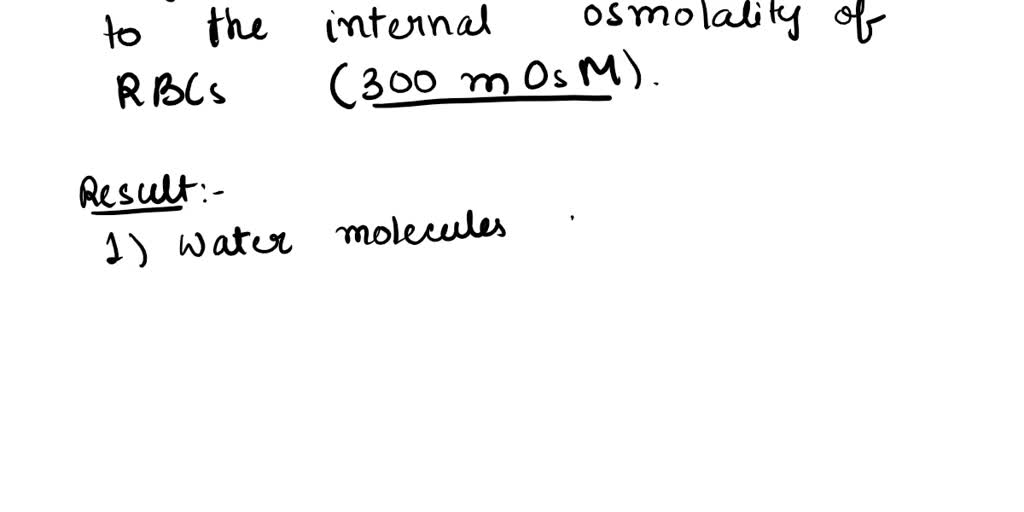 to the internal osmolality of
RBCs (300 m Os M).
Result:-
1) Water molecules